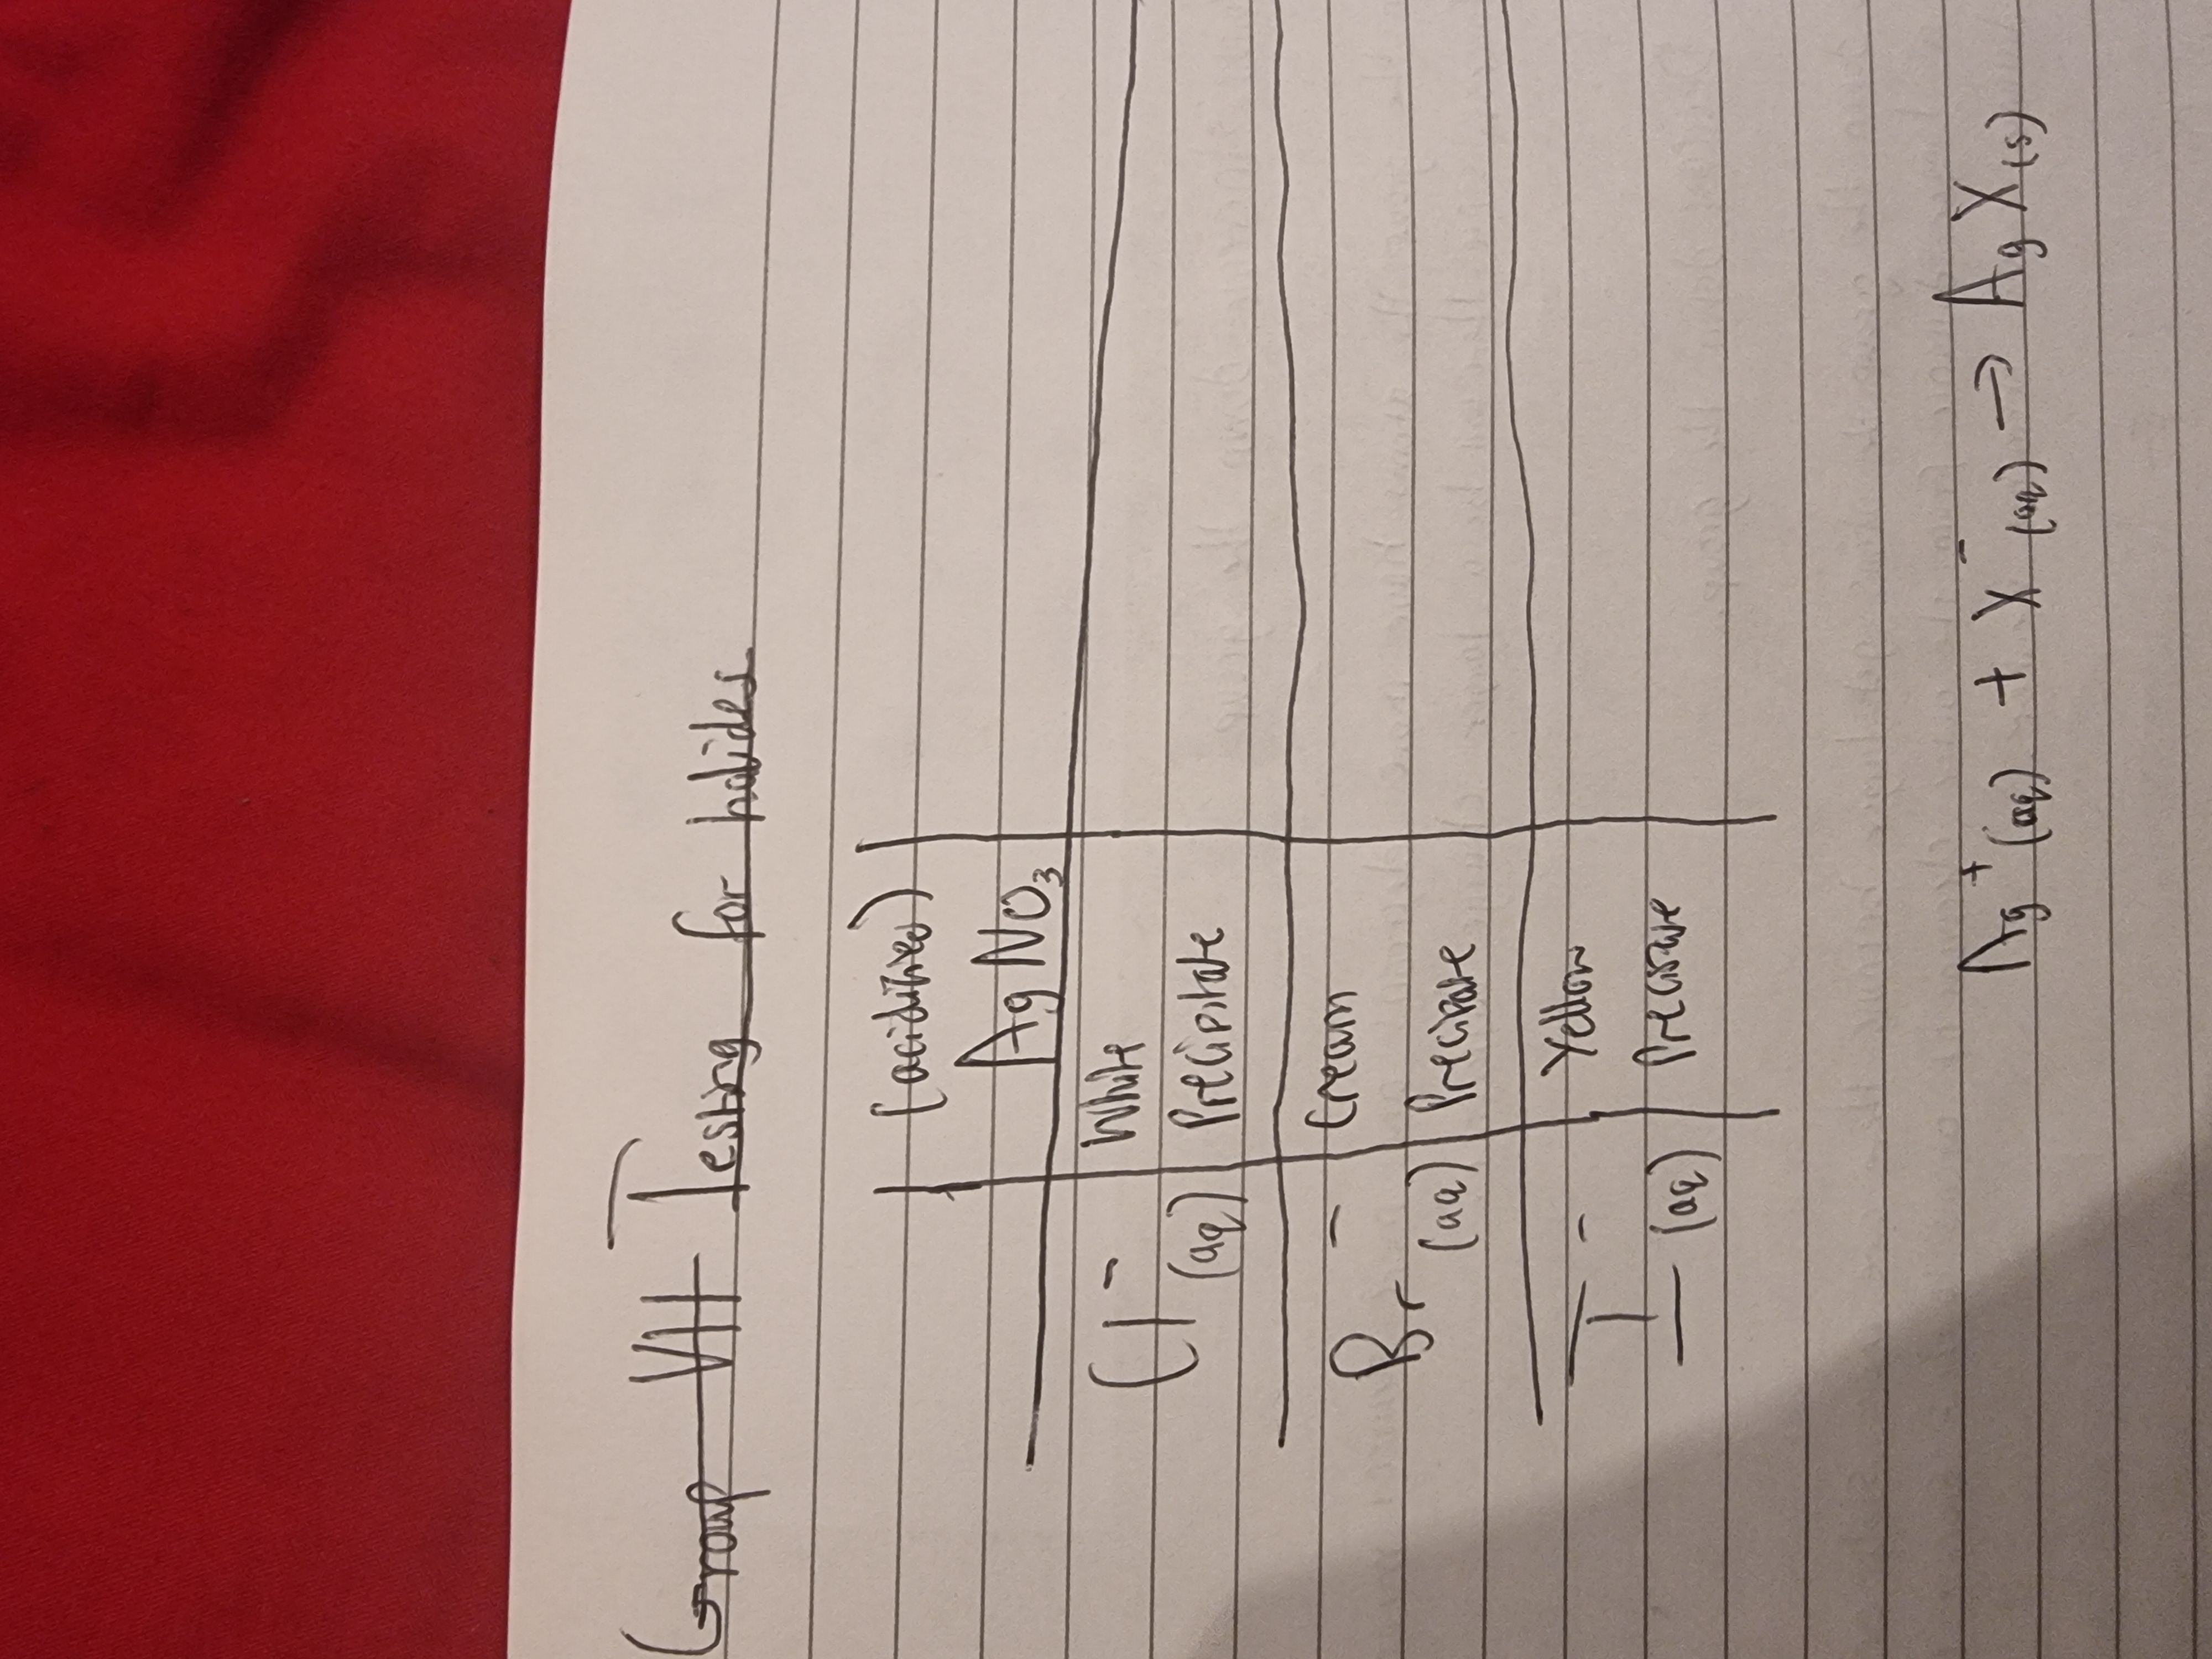 Group VII Testing for halides
(acidified)
AgNO3
Cl⁻ (aq) White
Precipitate
Br⁻ (aq) Cream
Precipitate
I⁻ (aq) Yellow
Ag⁺(aq) + X⁻(aq) → AgX(s)